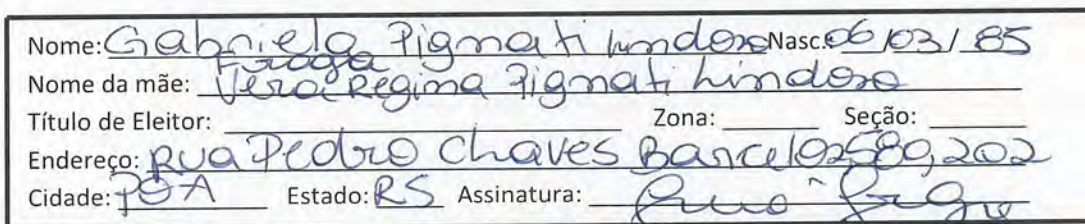 Nome: Gabriela Pigmati Lindoso Nasc.: 06/03/85
Fraga
Nome da mãe: Vera Regina Pigmati Lindoso
Título de Eleitor: Zona: Seção:
Endereço: Rua Pedro Chaves Barcelos 580, 202
Cidade: POA Estado: RS Assinatura: